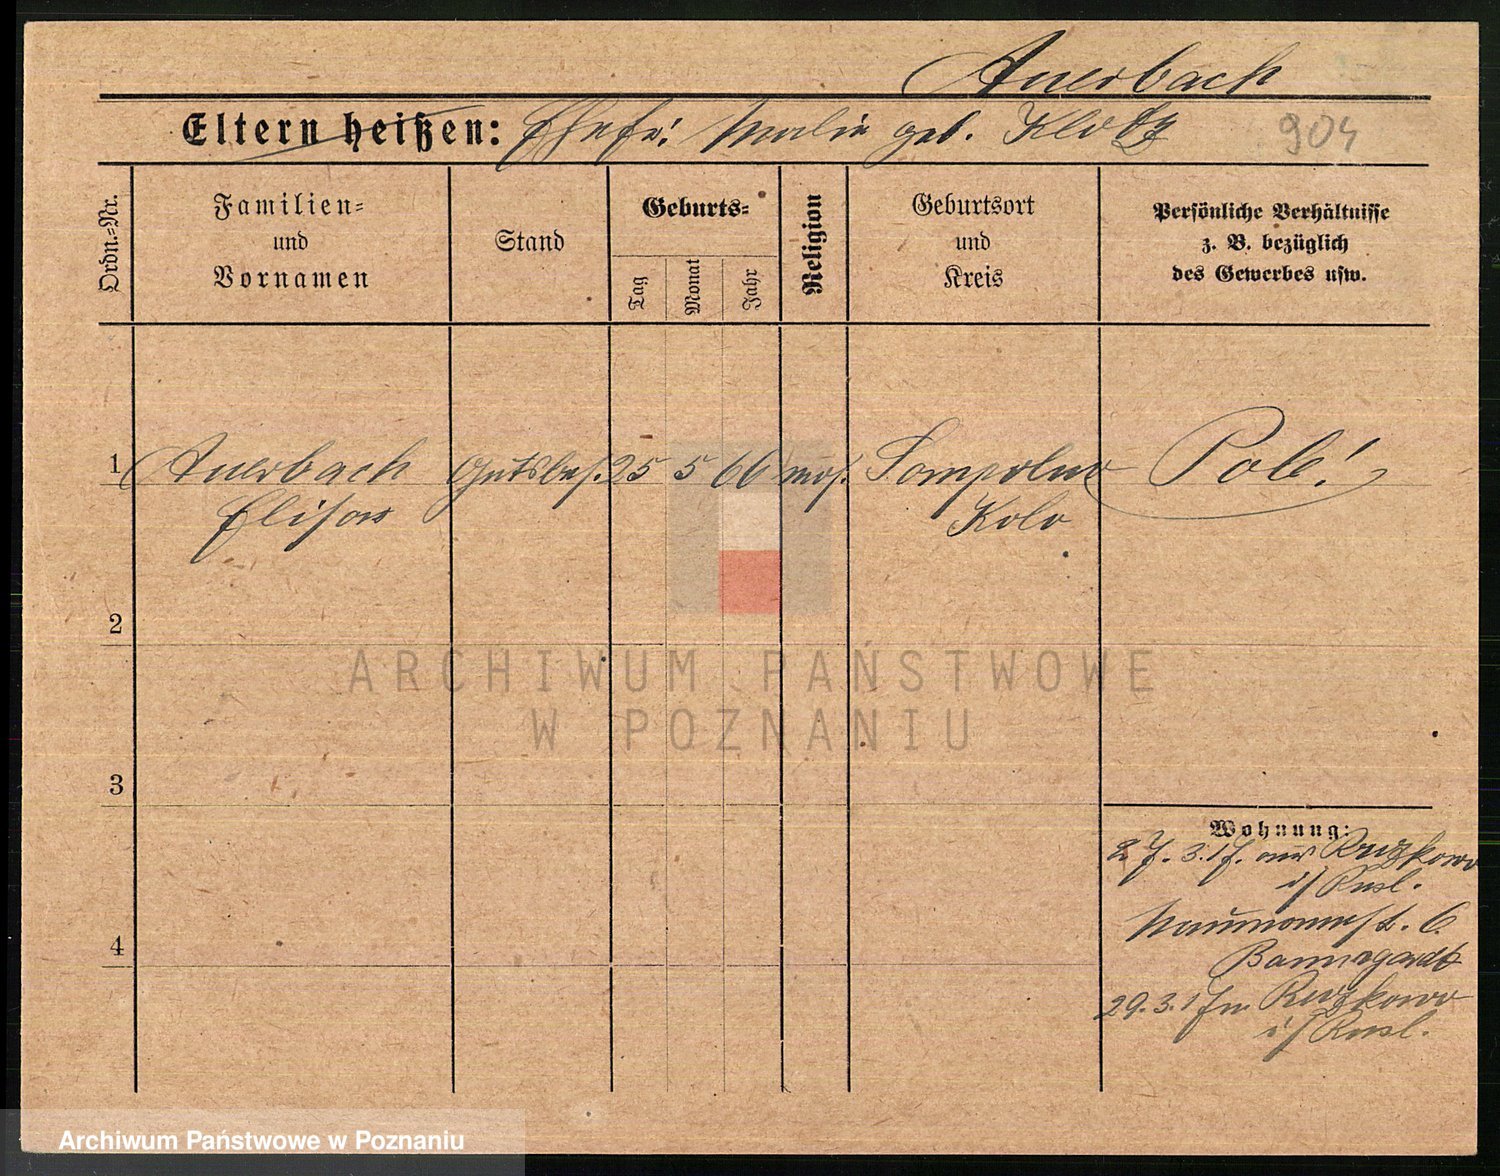 Auerbach
Eltern heißen: Ehefr: Malie geb. Klotz 904
Ordn.=Nr.
Familien=
und
Vornamen
Stand
Geburts=
Tag
Monat
Jahr
Religion
Geburtsort
und
Kreis
Persönliche Verhältnisse
z. B. bezüglich
des Gewerbes usw.
1 Auerbach Gutsbes. 25 5 66 mos. Sompolno Pole!
Kolo
2
3
4
Wohnung:
27. 3. 17. aus Ruszkowo
i/ Russl.
Naumannst. 6.
Baumgardt
29. 3. 17 Ruszkowo
i/ Russl.
ARCHIWUM PAŃSTWOWE
W POZNANIU
Archiwum Państwowe w Poznaniu